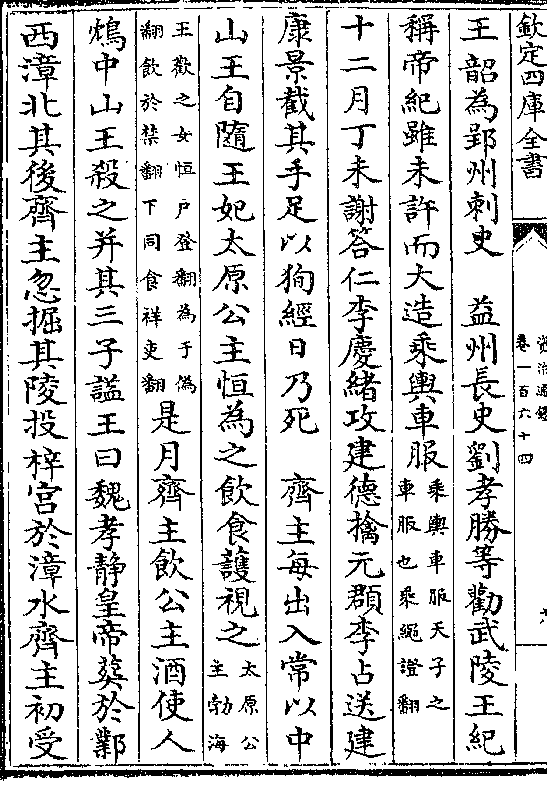 欽定四庫全書
資治通鑑
卷一百六十四
王韶為郢州刺史　益州長史劉孝勝等勸武陵王紀
稱帝紀雖未許而大造乘輿車服乘輿車服天子之車服也乘繩證翻
十二月丁未謝答仁李慶緒攻建德擒元頵李占送建
康景截其手足以狥經日乃死　齊主每出入常以中
山王自隨王妃太原公主恒為之飲食䕶視之太原公主勃海
王歡之女恒戸登翻為于偽翻飲於禁翻下同食祥吏翻是月齊主飲公主酒使人
鴆中山王殺之并其三子諡王曰魏孝靜皇帝葬於鄴
西漳北其後齊主忽掘其陵投梓宫於漳水齊主初受